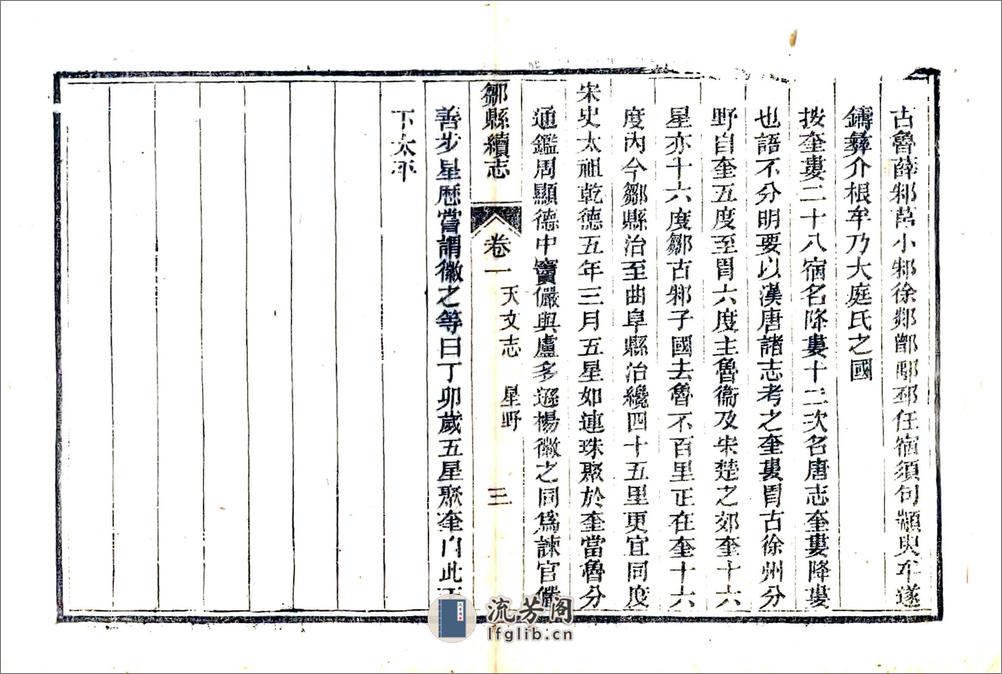 古魯薛邾莒小邾徐郯鄫鄅邳任宿須句顓臾牟遂
鑄彝介根牟乃大庭氏之國
按奎婁二十八宿名降婁十二次名唐志奎婁降婁
也語不分明要以漢唐諸志考之奎婁胃古徐州分
野自奎五度至胃六度主魯衞及宋楚之郊奎十六
星亦十六度鄒古邾子國去魯不百里正在奎十六
度內今鄒縣治至曲阜縣治纔四十五里更宜同度
宋史太祖乾德五年三月五星如連珠聚於奎當魯分
通鑑周顯德中竇儼與盧多遜楊徽之同爲諫官儼
鄒縣續志 卷一 天文志 星野 三
善步星曆嘗謂徽之等曰丁卯歲五星聚奎自此天
下太平
流芳閣
lfglib.cn